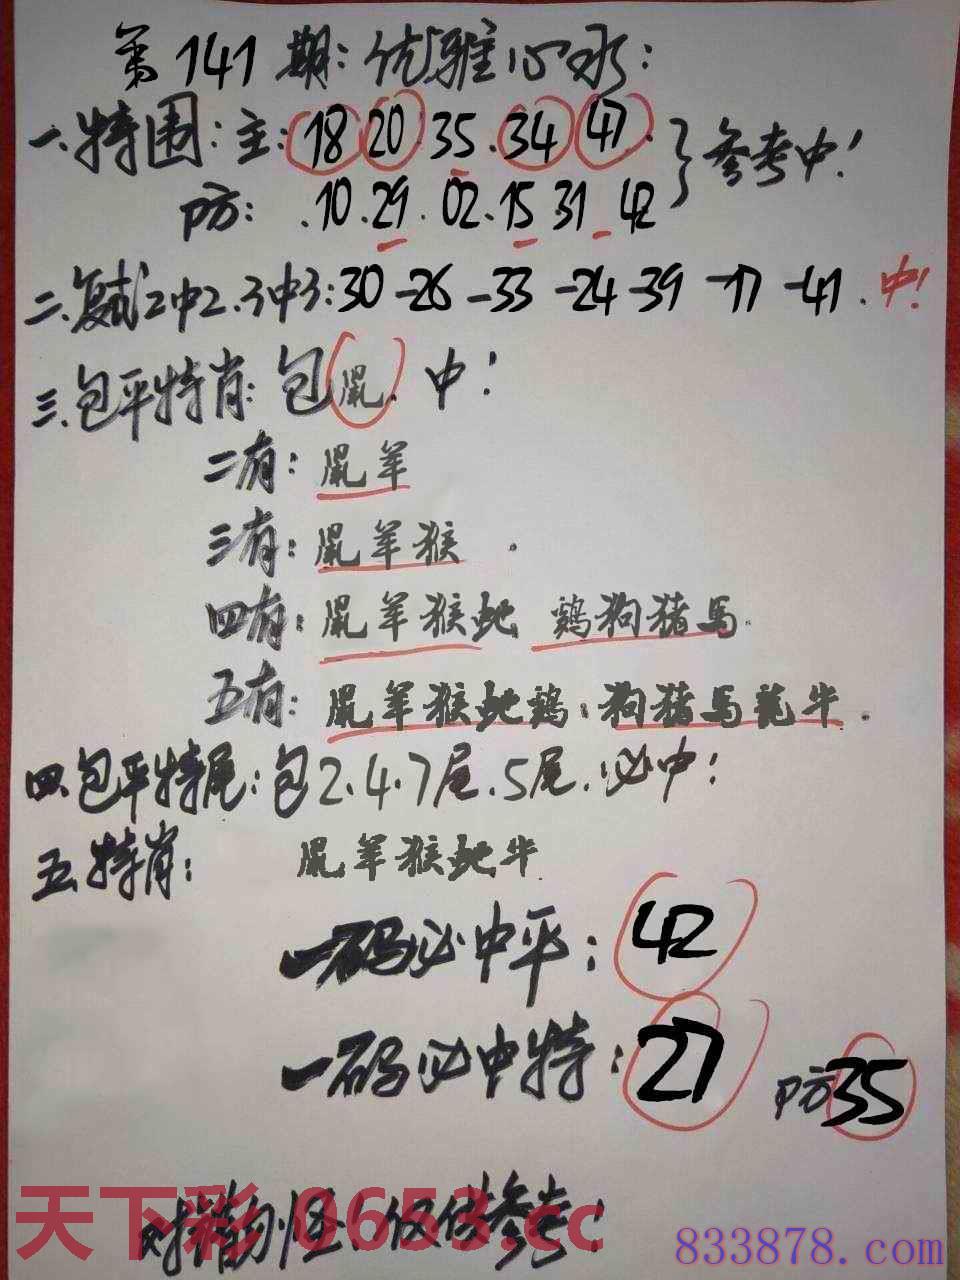 第141期：优雅心水：
一.特围：主：18 20 35.34 47. 参考中！
防：.10.29.02.15 31 42
二.复试2中2.3中3：30-26-33-24-39-17-41.中！
三.包平特肖：包鼠.中！
二有：鼠羊
三有：鼠羊猴.
四有：鼠羊猴蛇 鸡狗猪馬.
五有：鼠羊猴蛇鸡：狗猪馬龍牛.
四.包平特尾：包2.4.7尾.5尾.必中！
五.特肖： 鼠羊猴蛇牛.
一码必中平：42
一码必中特：27 防35
错勿怪：仅供参考！
天下彩 0653.cc
833878.com